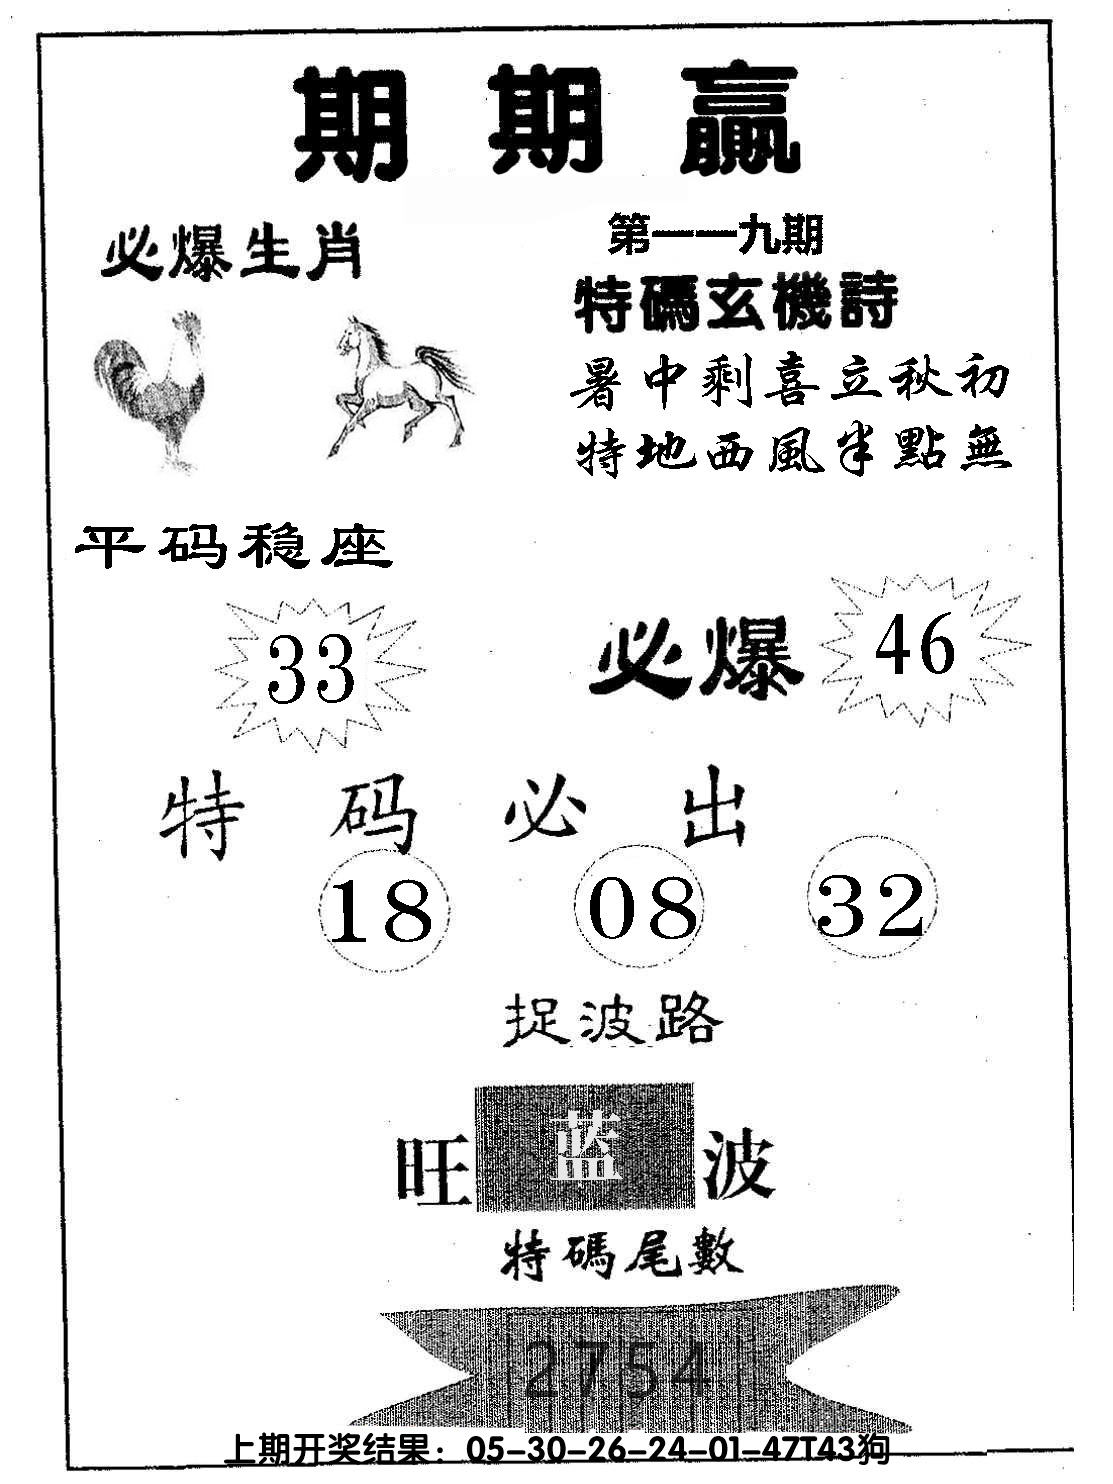 期期赢
第一一九期
必爆生肖
特碼玄機詩
暑中剩喜立秋初
特地西風半點無
平码稳座
33
必爆 46
特码必出
18 08 32
捉波路
旺蓝波
特碼尾數
2754
上期开奖结果：05-30-26-24-01-47T43狗